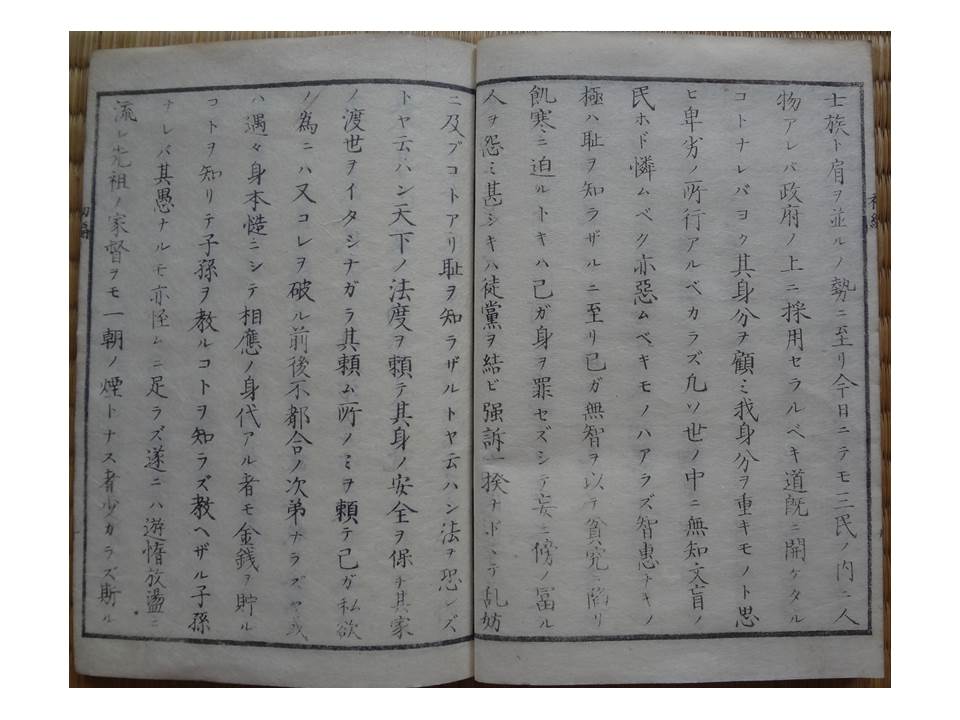 士族ト肩ヲ並ルノ勢ニ至リ今日ニテモ三民ノ内ニ人
物アレバ政府ノ上ニ採用セラルベキ道既ニ開ケタル
コトナレバヨク其身分ヲ顧ミ我身分ヲ重キモノト思
ヒ卑劣ノ所行アルベカラズ凡ソ世ノ中ニ無知文盲ノ
民ホド憐ムベク亦惡ムベキモノハアラズ智惠ナキノ
極ハ恥ヲ知ラザルニ至リ己ガ無智ヲ以テ貧究ニ陷リ
飢寒ニ迫ルトキハ己ガ身ヲ罪セズシテ妄ニ傍ノ冨ル
人ヲ怨ミ甚シキハ徒黨ヲ結ビ强訴一揆ナドヽテ乱妨
ニ及ブコトアリ恥ヲ知ラザルトヤ云ハン法ヲ恐レズ
トヤ云ハン天下ノ法度ヲ頼テ其身ノ安全ヲ保チ其家
ノ渡世ヲイタシナガラ其頼ム所ノミヲ頼テ己ガ私欲
ノ為ニハ又コレヲ破ル前後不都合ノ次弟ナラズヤ或
ハ遇々身本慥ニシテ相應ノ身代アル者モ金銭ヲ貯ル
コトヲ知リテ子孫ヲ教ルコトヲ知ラズ教ヘザル子孫
ナレバ其愚ナルモ亦怪ムニ足ラズ遂ニハ遊惰放盪ニ
流レ先祖ノ家督ヲモ一朝ノ煙トナス者少カラズ斯ル
初編